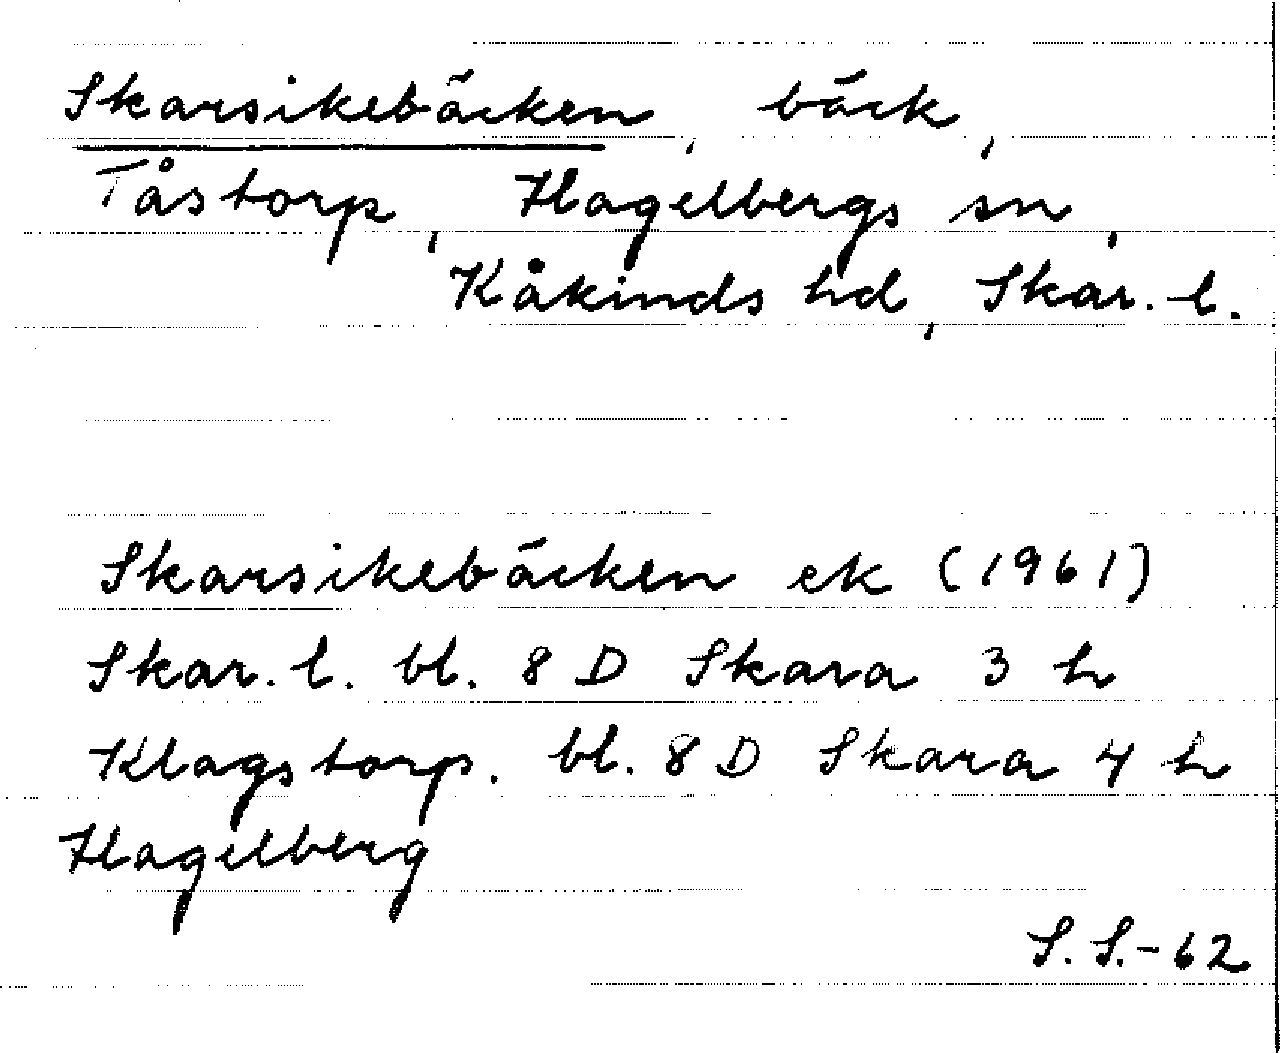 Skarsikebäcken, bäck,
Tåstorp, Hagelbergs sn,
Kåkinds hd, Skar. l.
Skarsikebäcken ek (1961)
Skar. l. bl. 8 D Skara 3 h
Klagstorp. bl. 8 D Skara 4 h
Hagelberg
S. S. - 62